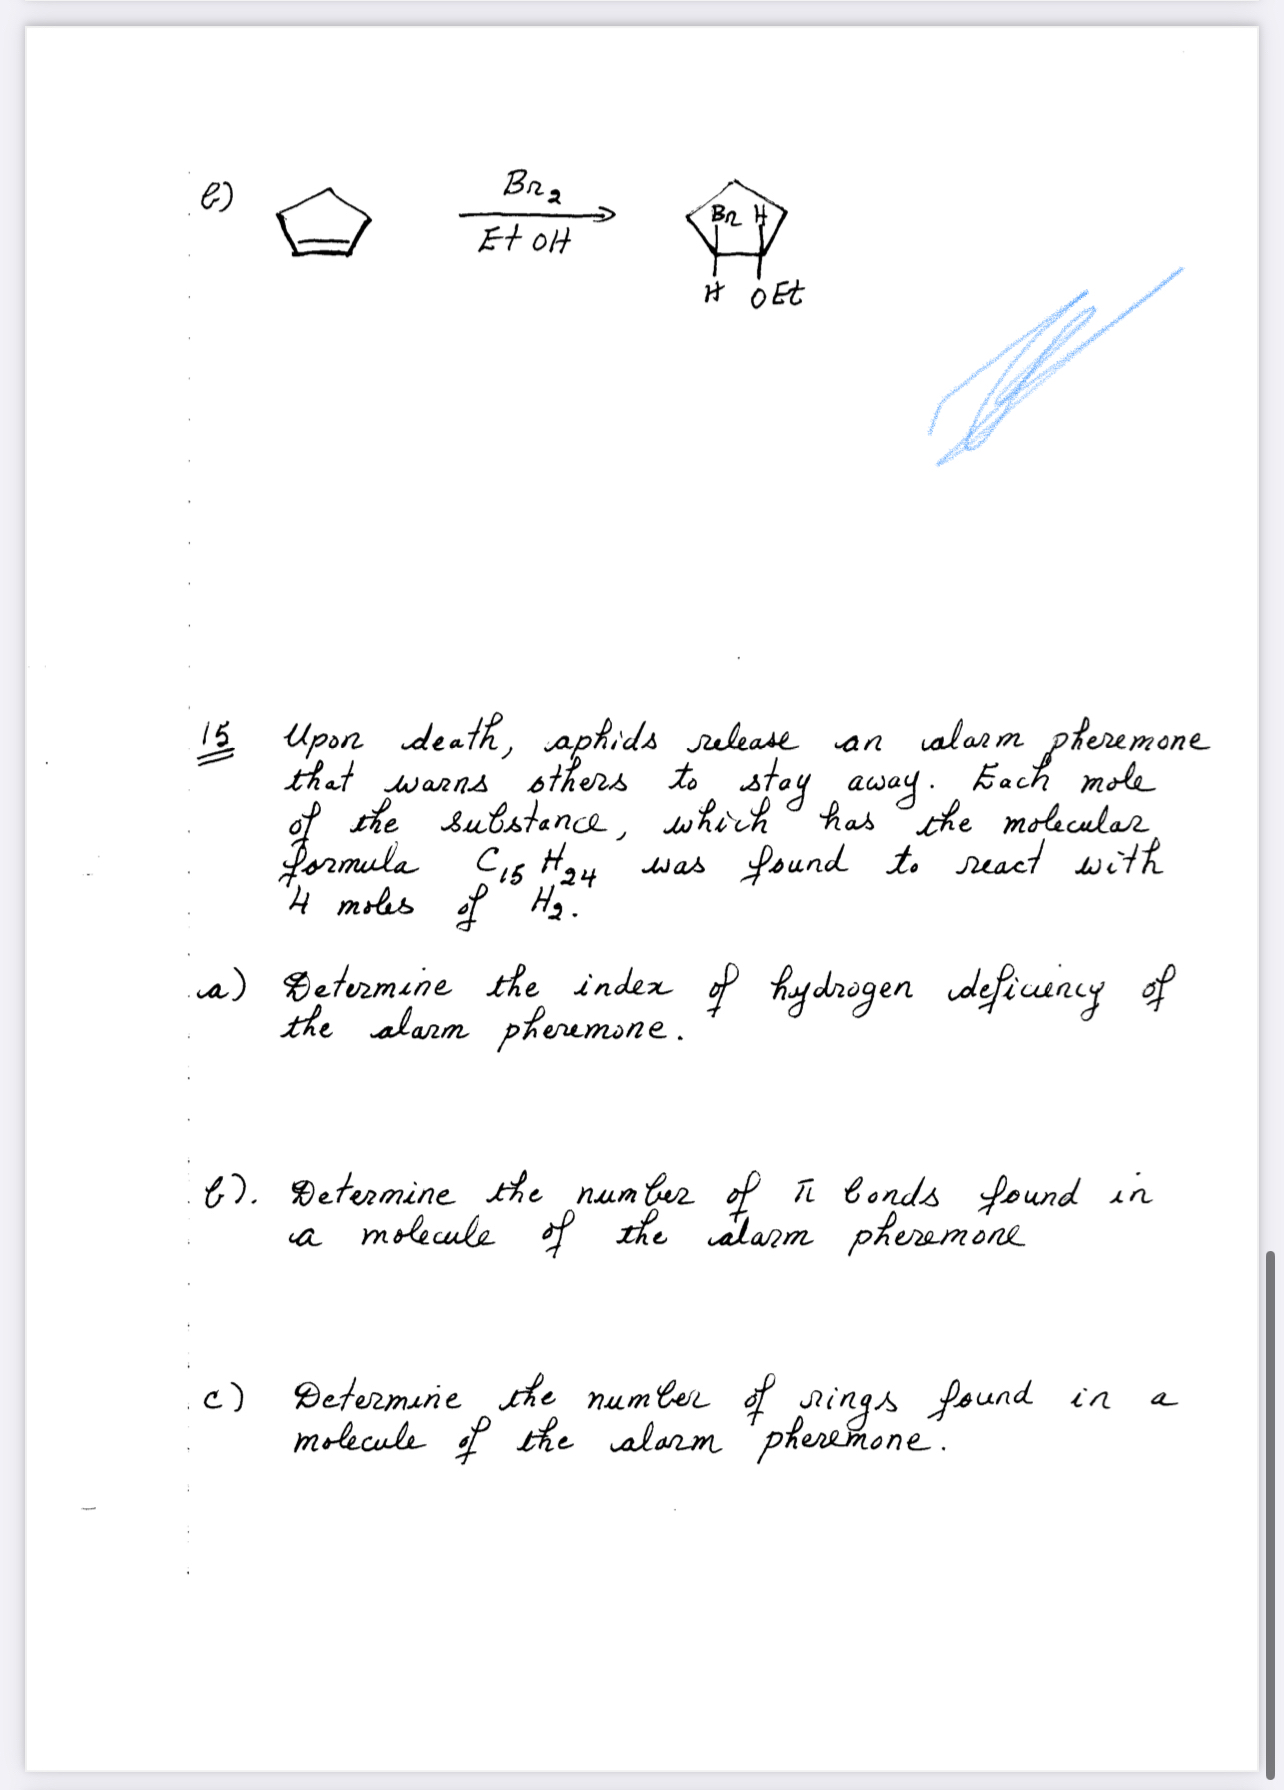 b)
Br2
EtOH
Br H
H OEt
15 Upon death, aphids release an alarm pheremone
that warns others to stay away. Each mole
of the substance, which has the molecular
formula C15H24 was found to react with
4 moles of H2.
a) Determine the index of hydrogen deficiency of
the alarm pheremone.
b). Determine the number of π bonds found in
a molecule of the alarm pheremone
c) Determine the number of rings found in a
molecule of the alarm pheremone.